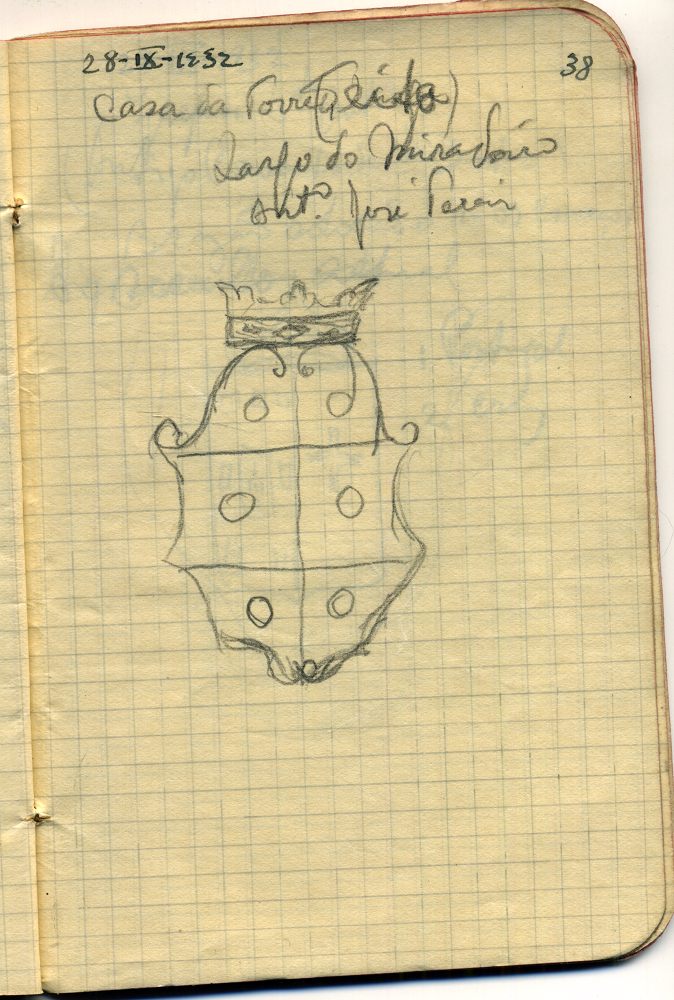 28-IX-1932
38
Casa da Torre
Largo do Miradoiro
Antº. José